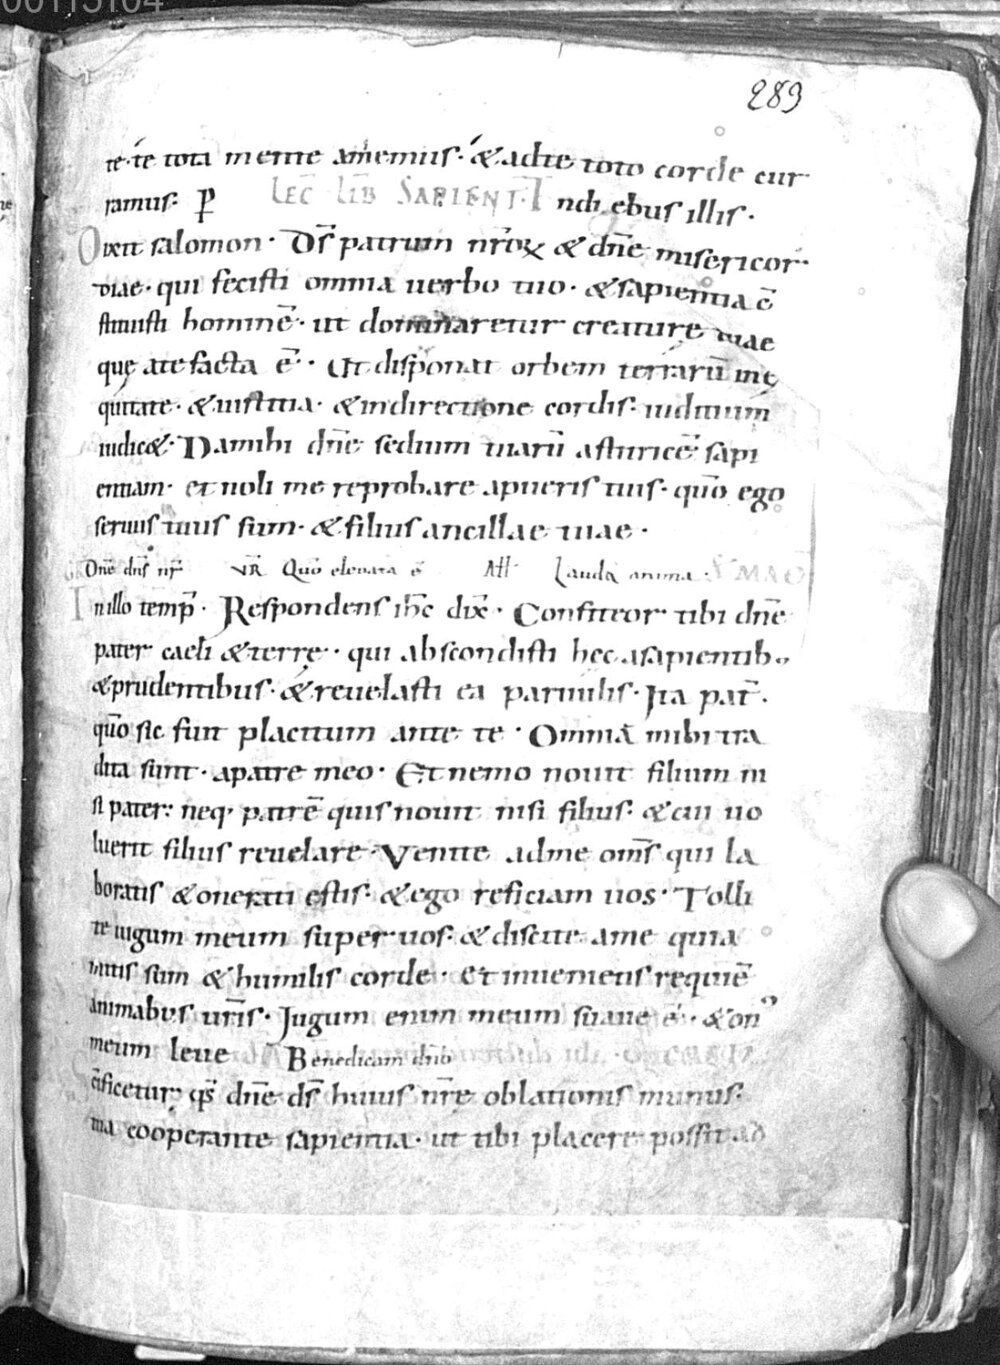 00113104
289
te· te tota mente amemus· & ad te toto corde cur
ramus· P̱ LEC̄ LIB̄ SAPIENT̄· In diebus illis·
Dixit salomon· Dš patrum nr̄oꝝ & dn̄e misericor
diae· qui fecisti omnia uerbo tuo· & sapientia c̄
stituisti hominē· ut dominaretur creaturę tuae
quę a te facta ē· Ut disponat orbem terrarū in ę
quitate· & iustitia· & in directione cordis· iuditium
iudic&· Da mihi dn̄e sedium tuarū asstricē sapi
entiam· et noli me reprobare a pueris tuis· qūo ego
seruus tuus sum· & filius ancillae tuae·
Dn̄e dn̄s nr̄ VR̄ Qūo eleuata ē All· Lauda anima
In illo temp̄· Respondens ih̄c dix̄· Confiteor tibi dn̄e
pater caeli & terrę· qui abscondisti hęc a sapientib;
& prudentibus· & reuelasti ea paruulis· Ita pat̄·
qūo sic fuit placitum ante te· Omniā mihi tra
dita sunt· a patre meo· Et nemo nouit filium ni
si pater· neq· patrē quis nouit nisi filius· & cui uo
luerit filius reuelare· Venite ad me om̄s qui la
boratis & onerati estis· & ego reficiam uos· Tolli
te iugum meum super uos· & discite a me quia
mitis sum & humilis corde· et inuenietis requiē
animabus ur̄is· Jugum enim meum suaue ē· & on᾽
meum leue Benedicam dn̄o
c̄ificetur qs̄ dn̄e ds̄ huius nr̄ę oblationis munus·
ma cooperante sapientia· ut tibi placere possit ad